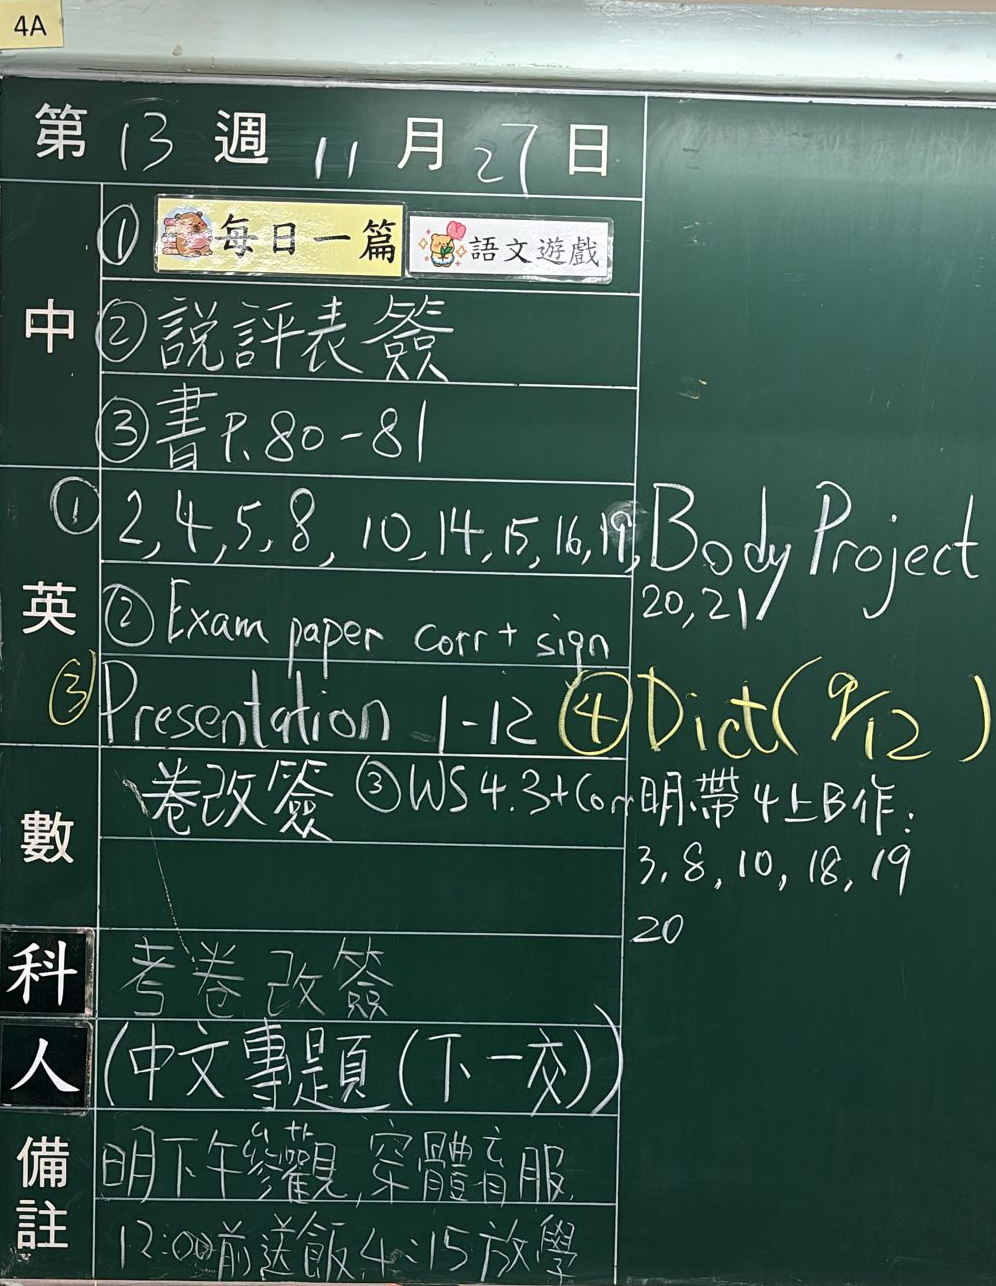 4A
第 13 週 11 月 27 日
中
① 每日一篇 語文遊戲
② 說評表簽
③ 書 P.80-81
英
① 2, 4, 5, 8, 10, 14, 15, 16, 19, Body Project
20, 21
② Exam paper corr + sign
③ Presentation 1-12 ④ Dict ( 9/12 )
數
卷改簽 ③ WS 4.3 + Corr 明帶 4上B作:
3, 8, 10, 18, 19
20
科 考卷改簽
人 (中文專題 (下一交))
備註
明下午參觀, 穿體育服
12:00前送飯, 4:15放學